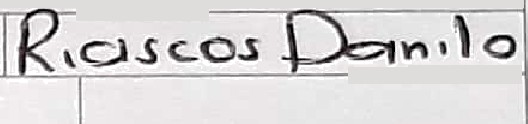 Riascos Danilo